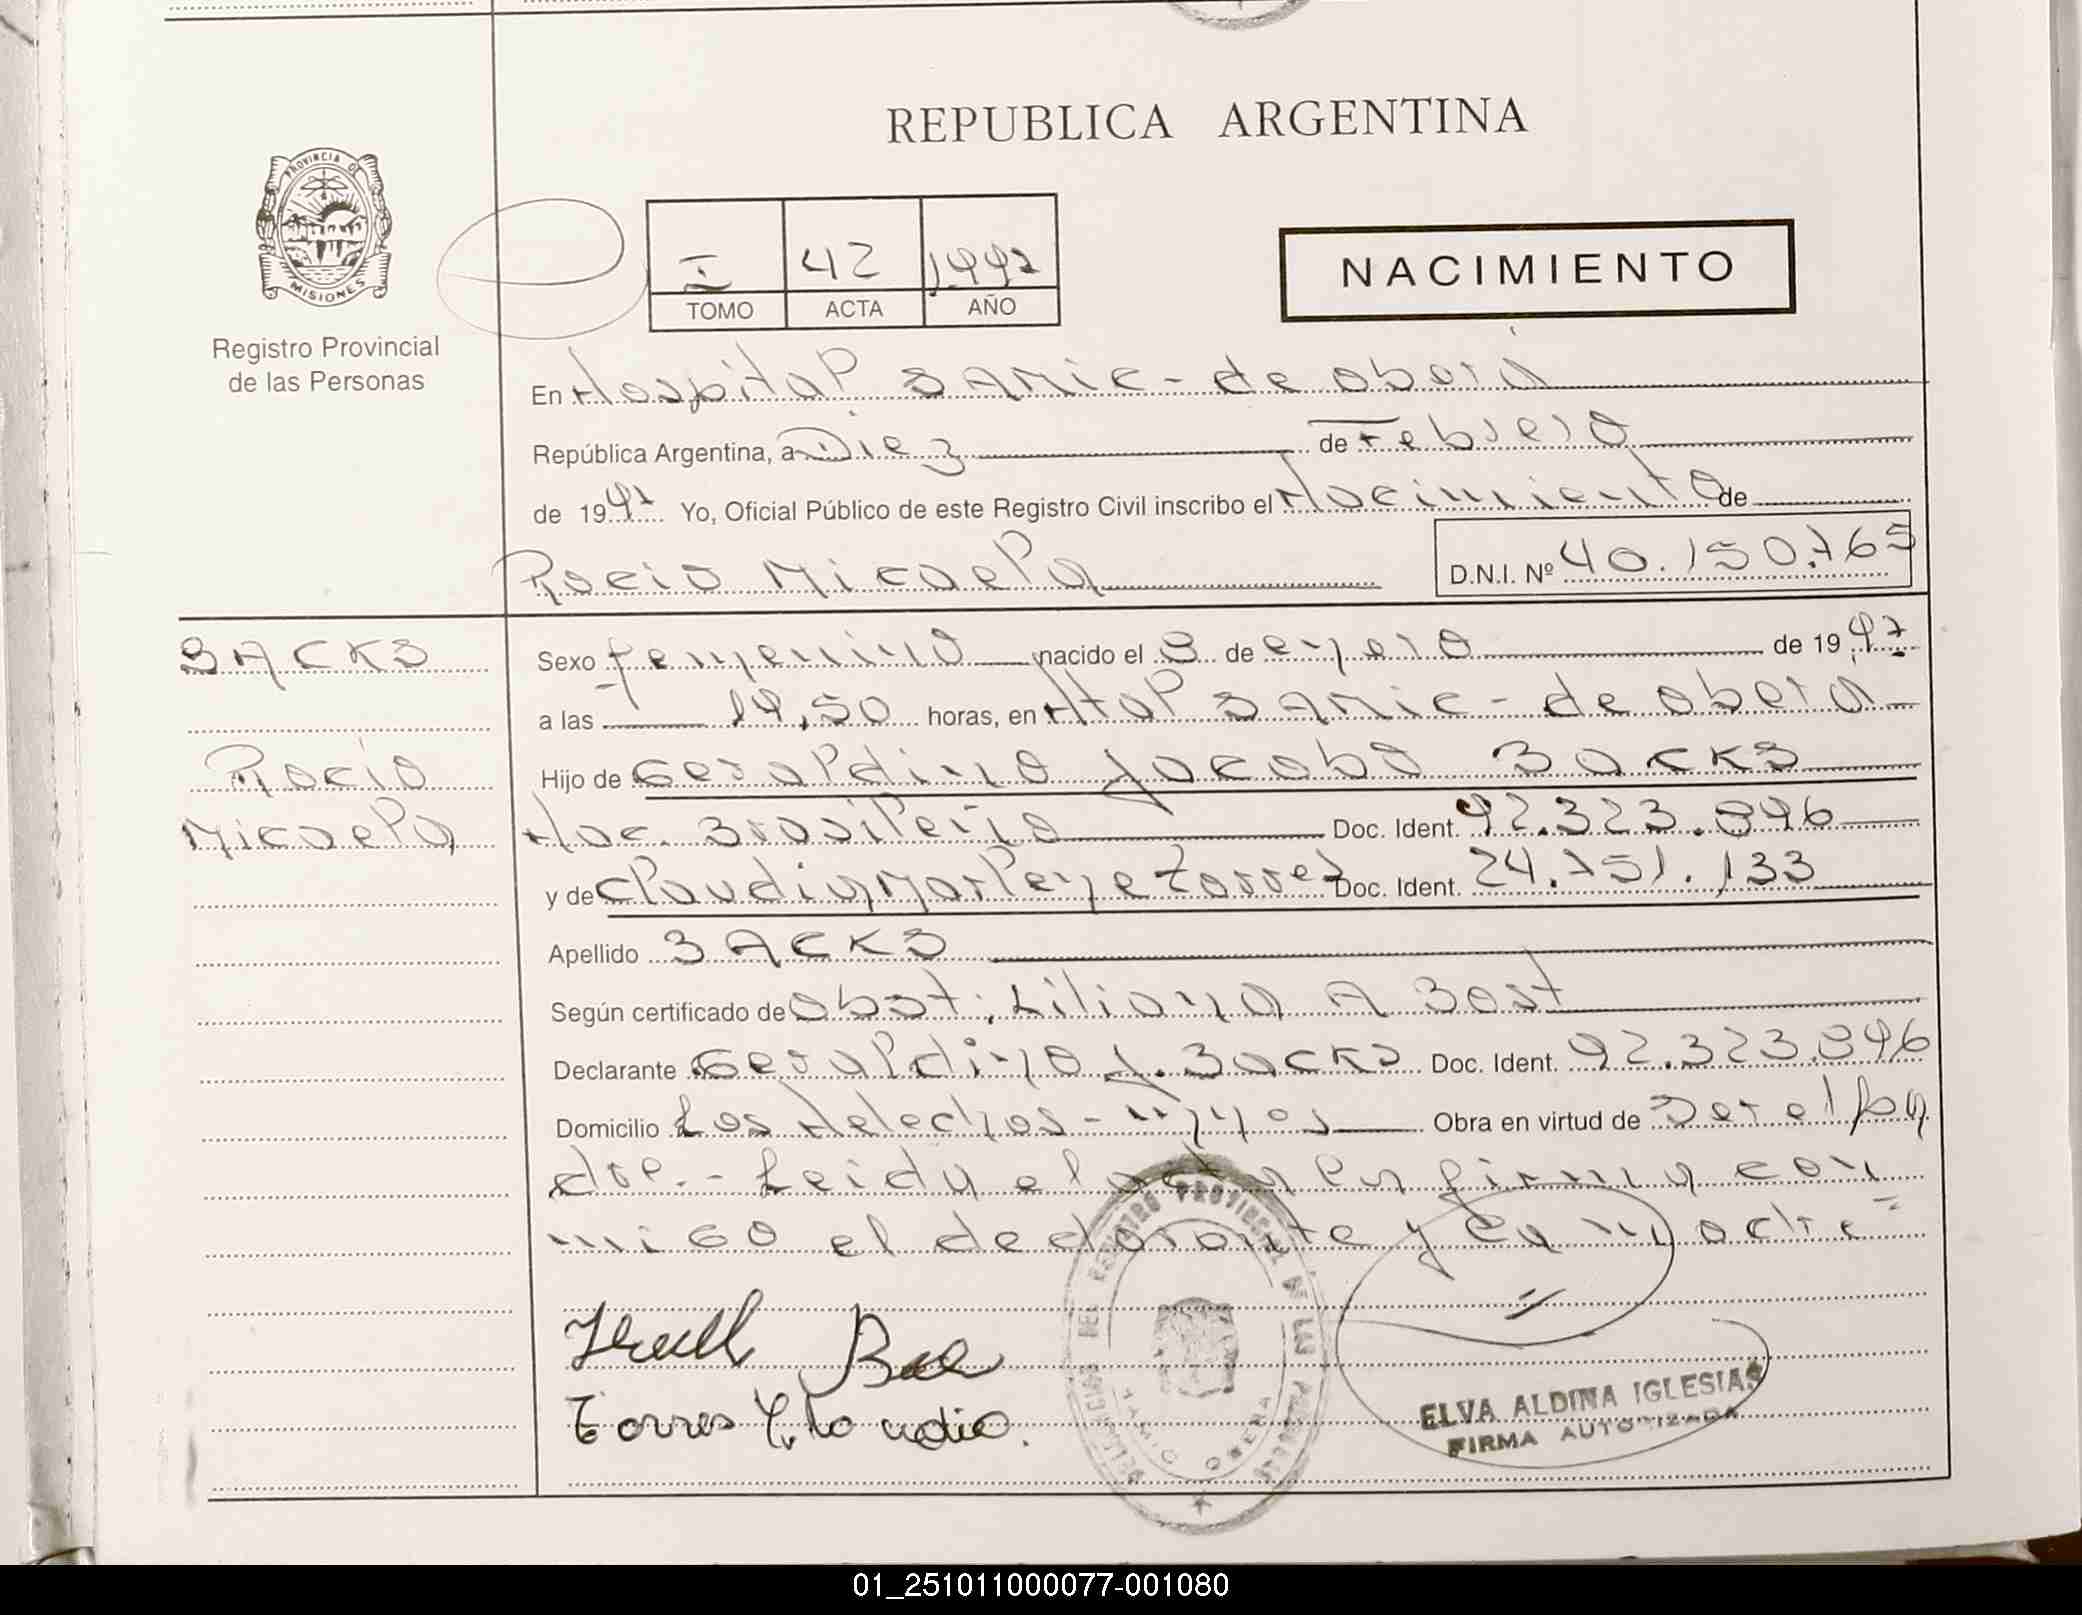 REPUBLICA ARGENTINA
PROVINCIA DE MISIONES
Registro Provincial
de las Personas
I 42 1997
TOMO ACTA AÑO
NACIMIENTO
En Hospital SAMIC - de oberá
República Argentina, a Diez de Febrero
de 1997 Yo, Oficial Público de este Registro Civil inscribo el Nacimiento de
Rocio Micaela D.N.I. Nº 40.150.765
BACKS
Rocío
Micaela
Sexo femenino nacido el 8 de enero de 1997
a las 14,50 horas, en Htal SAMIC - de obera
Hijo de Geraldino Jacobo Backs
Nac. Brasileña Doc. Ident. 92.323.896
y de Claudia Marlene Torres Doc. Ident. 24.751.133
Apellido BACKS
Según certificado de obst. Liliana A Bost
Declarante Geraldino J. Backs Doc. Ident. 92.323.896
Domicilio Los Helechos - Mnes Obra en virtud de Ser el pa
dre.- Leida el acta la firma con
migo el declarante y la madre =
Torres Claudia.
DELEGACIAS DEL REGISTRO PROVINCIAL DE LAS PERSONAS
OBERA
ELVA ALDINA IGLESIAS
FIRMA AUTORIZADA
01_251011000077-001080